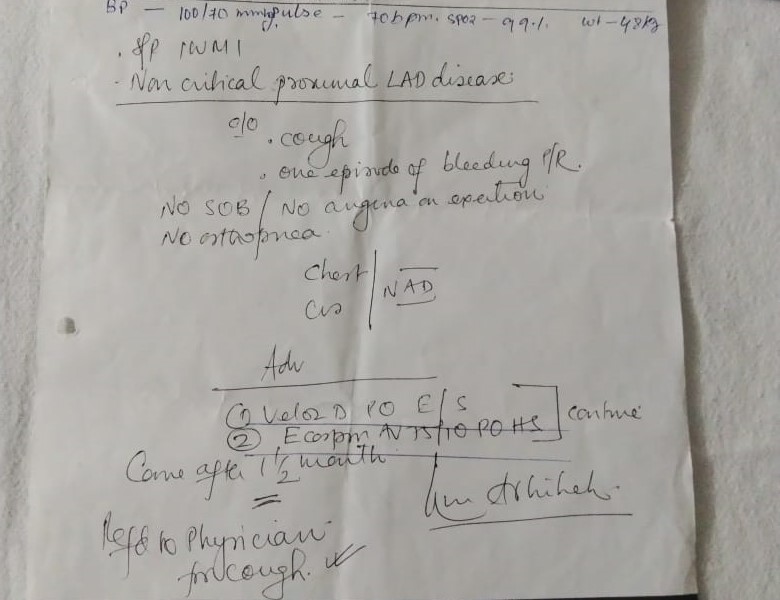 BP — 100/70 mmHg pulse – 70bpm. SPO2 – 99.1. wt – 48kg
. S/P IWMI
. Non critical proximal LAD disease
c/o . cough
. one episode of bleeding P/R.
NO SOB / No angina on exertion
No orthopnea.
Chest
NAD
CVS
Adv
① Veloz D PO E/S
② Ecosprin AV 75/10 PO HS
continue
Come after 1 1/2 month
Ref to Physician
for cough.